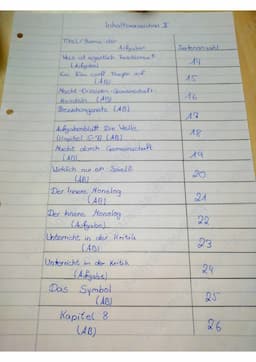 Inhaltsverzeichnis II
Titel/Thema der
Aufgaben
Seitenanzahl
Was ist eigentlich Faschismus?
(Aufgabe)
14
Ein Zug wirft Fragen auf
(AB)
15
Macht-Disziplin-Gemeinschaft-
Handeln (AB)
16
Beziehungsnetz (AB)
17
Aufgabenblatt Die Welle
(Kapitel 5-7) (AB)
18
Macht durch Gemeinschaft
(AB)
19
Wirklich nur ein Spiel?
(AB)
20
Der Innere Monolog
(AB)
21
Der Innere Monolog
(Aufgabe)
22
Unterricht in der Kritik
(AB)
23
Unterricht in der Kritik
(Aufgabe)
24
Das Symbol
(AB)
25
Kapitel 8
(AB)
26